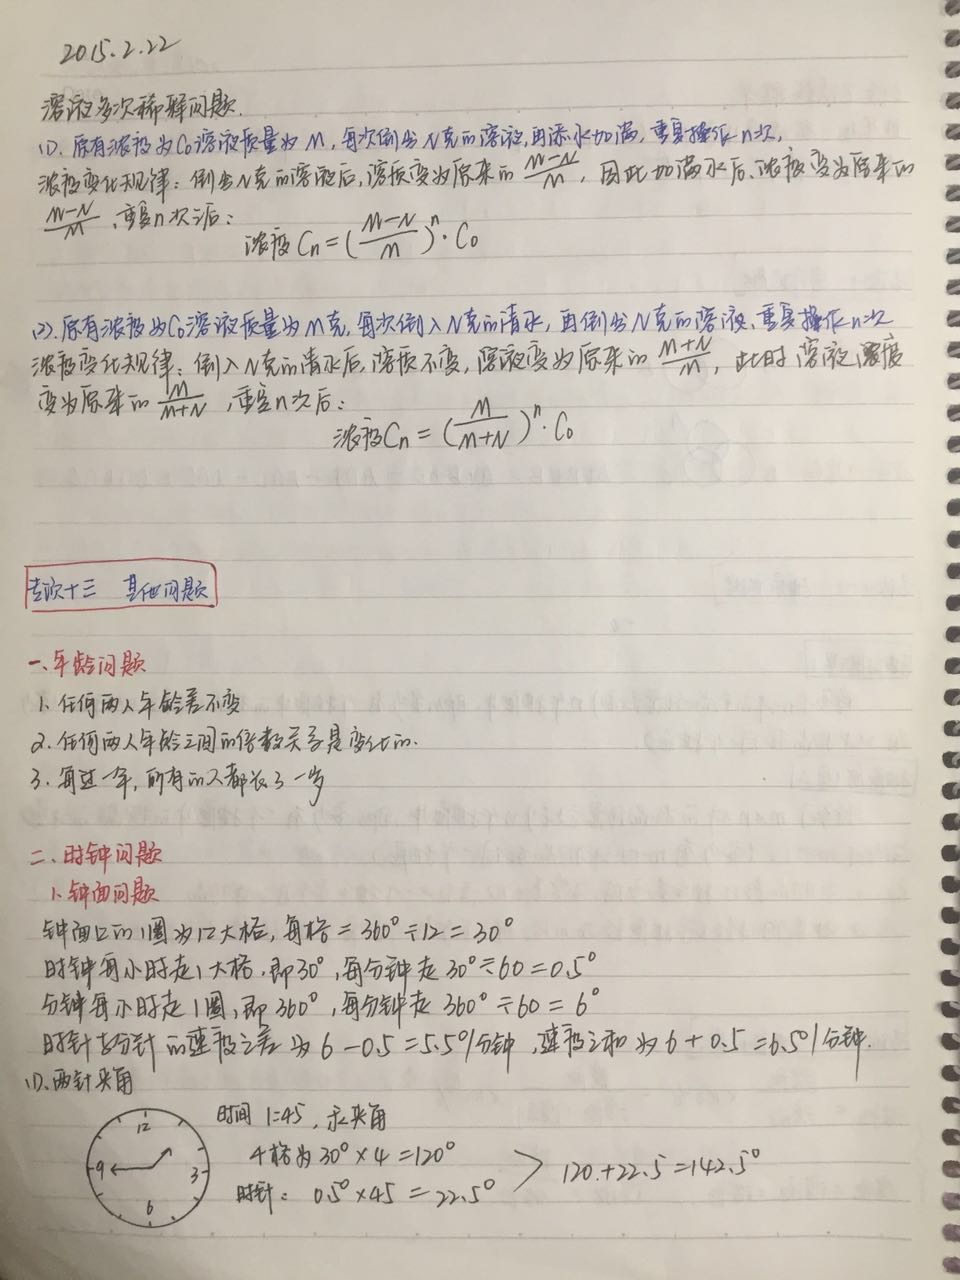 2015.2.22
溶液多次稀释问题.
(1). 原有浓度为C₀溶液质量为M, 每次倒出N克的溶液, 再添水加满, 重复操作n次,
浓度变化规律: 倒出N克的溶液后, 溶质变为原来的 (M-N)/M , 因此加满水后, 浓度变为原来的
(M-N)/M , 重复n次之后:
浓度 Cn = ((M-N)/M)ⁿ · C₀
(2). 原有浓度为C₀溶液质量为M克, 每次倒入N克的清水, 再倒出N克的溶液, 重复操作n次
浓度变化规律: 倒入N克的清水后, 溶质不变, 溶液变为原来的 (M+N)/M , 此时溶液浓度
变为原来的 M/(M+N) , 重复n次后:
浓度Cn = (M/(M+N))ⁿ · C₀
专项十三 其他问题
一、年龄问题
1. 任何两人年龄差不变
2. 任何两人年龄之间的倍数关系是变化的.
3. 每过一年, 所有的人都长了一岁
二、时钟问题
1. 钟面问题
钟面上的1圈为12大格, 每格 = 360° ÷ 12 = 30°
时钟每小时走1大格, 即30°, 每分钟走 30° ÷ 60 = 0.5°
分钟每小时走1圈, 即360°, 每分钟走 360° ÷ 60 = 6°
时针与分针的速度之差为 6 - 0.5 = 5.5°/分钟, 速度之和为 6 + 0.5 = 6.5°/分钟.
(1). 两针夹角
时间 1:45, 求夹角
4格为 30° × 4 = 120°
时针: 0.5° × 45 = 22.5°
> 120 + 22.5 = 142.5°
12
9
3
6